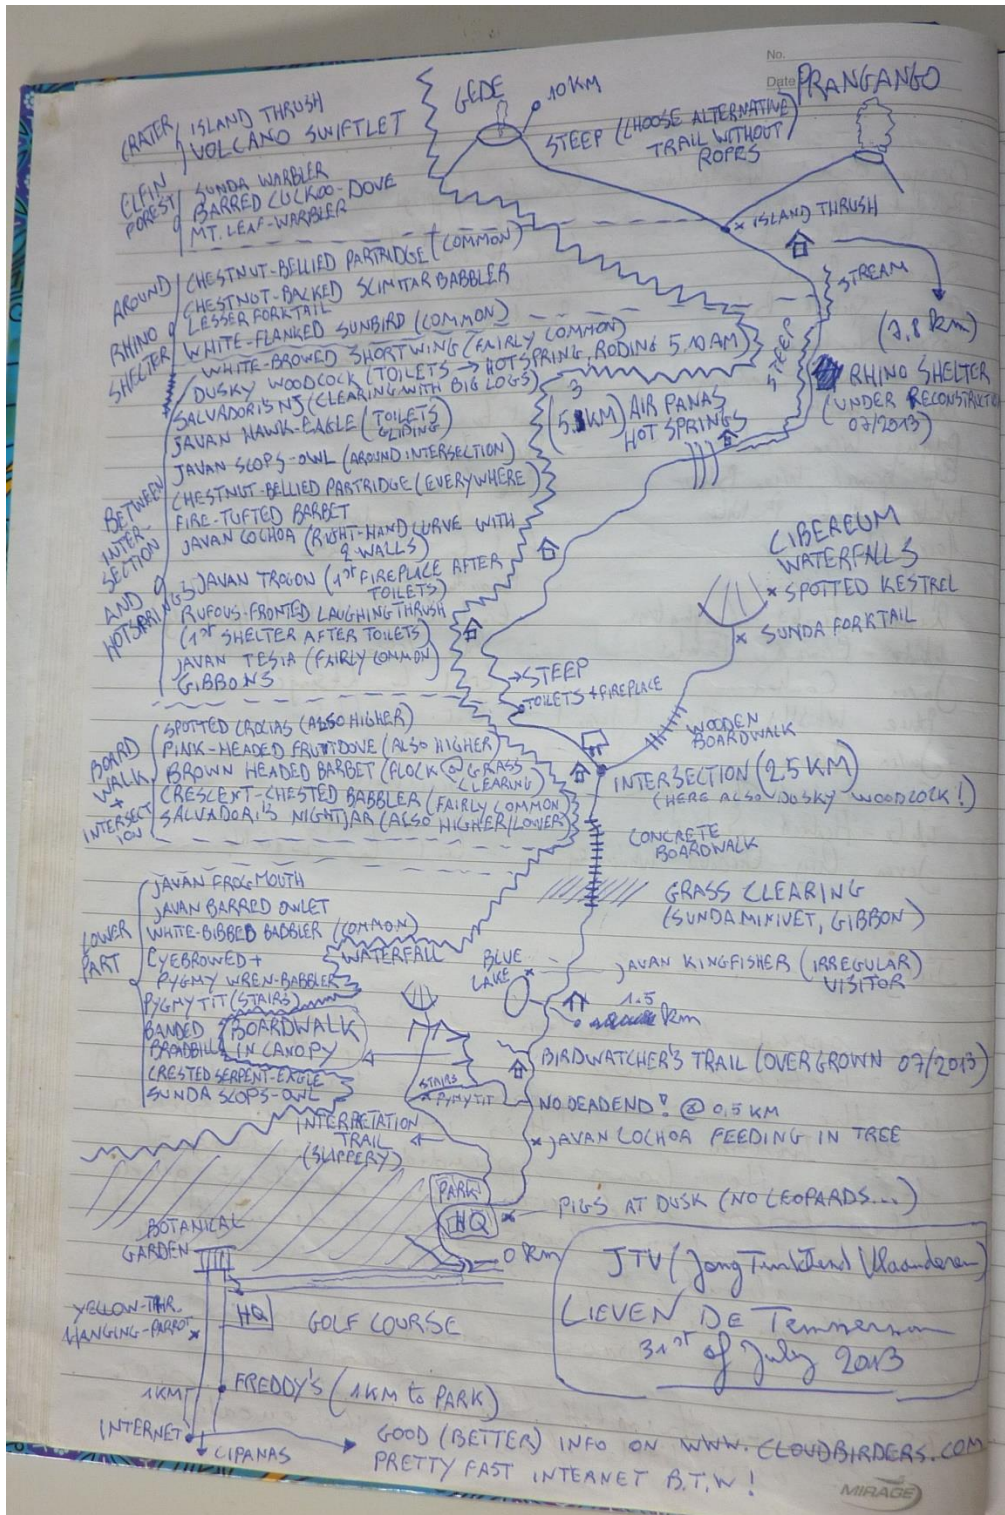 No.
Date
GEDE
10 KM
PRANGANGO
STEEP (CHOOSE ALTERNATIVE)
TRAIL WITHOUT
ROPES
CRATER
ISLAND THRUSH
VOLCANO SWIFTLET
ELFIN
FOREST
SUNDA WARBLER
BARRED CUCKOO-DOVE
MT. LEAF-WARBLER
ISLAND THRUSH
STREAM
(7,8 km)
AROUND
RHINO
SHELTER
CHESTNUT-BELLIED PARTRIDGE (COMMON)
CHESTNUT-BACKED SCIMITAR BABBLER
LESSER FORKTAIL
WHITE-FLANKED SUNBIRD (COMMON)
STEEP
RHINO SHELTER
(UNDER RECONSTRUCT
07/2013)
BETWEEN
INTER-
SECTION
AND
HOTSPRINGS
WHITE-BROWED SHORTWING (FAIRLY COMMON)
DUSKY WOODCOCK (TOILETS → HOTSPRING, RODING 5.10 AM)
SALVADORI'S NJ (CLEARING WITH BIG LOGS)
JAVAN HAWK-EAGLE (TOILETS
GLIDING)
JAVAN SCOPS-OWL (AROUND INTERSECTION)
CHESTNUT-BELLIED PARTRIDGE (EVERYWHERE)
FIRE-TUFTED BARBET
JAVAN COCHOA (RIGHT-HAND CURVE WITH
2 WALLS)
JAVAN TROGON (1st FIREPLACE AFTER
TOILETS)
RUFOUS-FRONTED LAUGHINGTHRUSH
(1st SHELTER AFTER TOILETS)
JAVAN TESIA (FAIRLY COMMON)
GIBBONS
(5,3 KM)
AIR PANAS
HOT SPRINGS
CIBEREUM
WATERFALLS
SPOTTED KESTREL
SUNDA FORKTAIL
→ STEEP
TOILETS + FIREPLACE
WOODEN
BOARDWALK
INTERSECTION (2.5 KM)
(HERE ALSO DUSKY WOODCOCK!)
BOARD
WALK
+
INTERSECT
ION
SPOTTED CROCIAS (ALSO HIGHER)
PINK-HEADED FRUITDOVE (ALSO HIGHER)
BROWN HEADED BARBET (FLOCK @ GRASS
CLEARING)
CRESCENT-CHESTED BABBLER (FAIRLY COMMON)
SALVADORI'S NIGHTJAR (ALSO HIGHER/LOWER)
CONCRETE
BOARDWALK
GRASS CLEARING
(SUNDA MINIVET, GIBBON)
LOWER
PART
JAVAN FROGMOUTH
JAVAN BARRED OWLET
WHITE-BIBBED BABBLER (COMMON)
EYEBROWED +
PYGMY WREN-BABBLER
PYGMY TIT (STAIRS)
BANDED
BROADBILL
(BOARDWALK
IN CANOPY)
CRESTED SERPENT-EAGLE
SUNDA SCOPS-OWL
WATERFALL
BLUE
LAKE
JAVAN KINGFISHER (IRREGULAR)
VISITOR
1.5
km
BIRDWATCHER'S TRAIL (OVERGROWN 07/2013)
STAIRS
PYMYTIT
NO DEADEND! @ 0,5 KM
JAVAN COCHOA FEEDING IN TREE
INTERPRETATION
TRAIL
(SLIPPERY)
PARK
HQ
PIGS AT DUSK (NO LEOPARDS...)
0 km
BOTANICAL
GARDEN
HQ
GOLF COURSE
YELLOW-THR.
HANGING-PARROT
FREDDY'S (1KM to PARK)
1KM
INTERNET
CIPANAS
JTV (Jong Tuiktend Vlaanderen)
LIEVEN DE Temmerman
31st of July 2013
GOOD (BETTER) INFO ON WWW.CLOUDBIRDERS.COM
PRETTY FAST INTERNET B.T.W!
MIRAGE